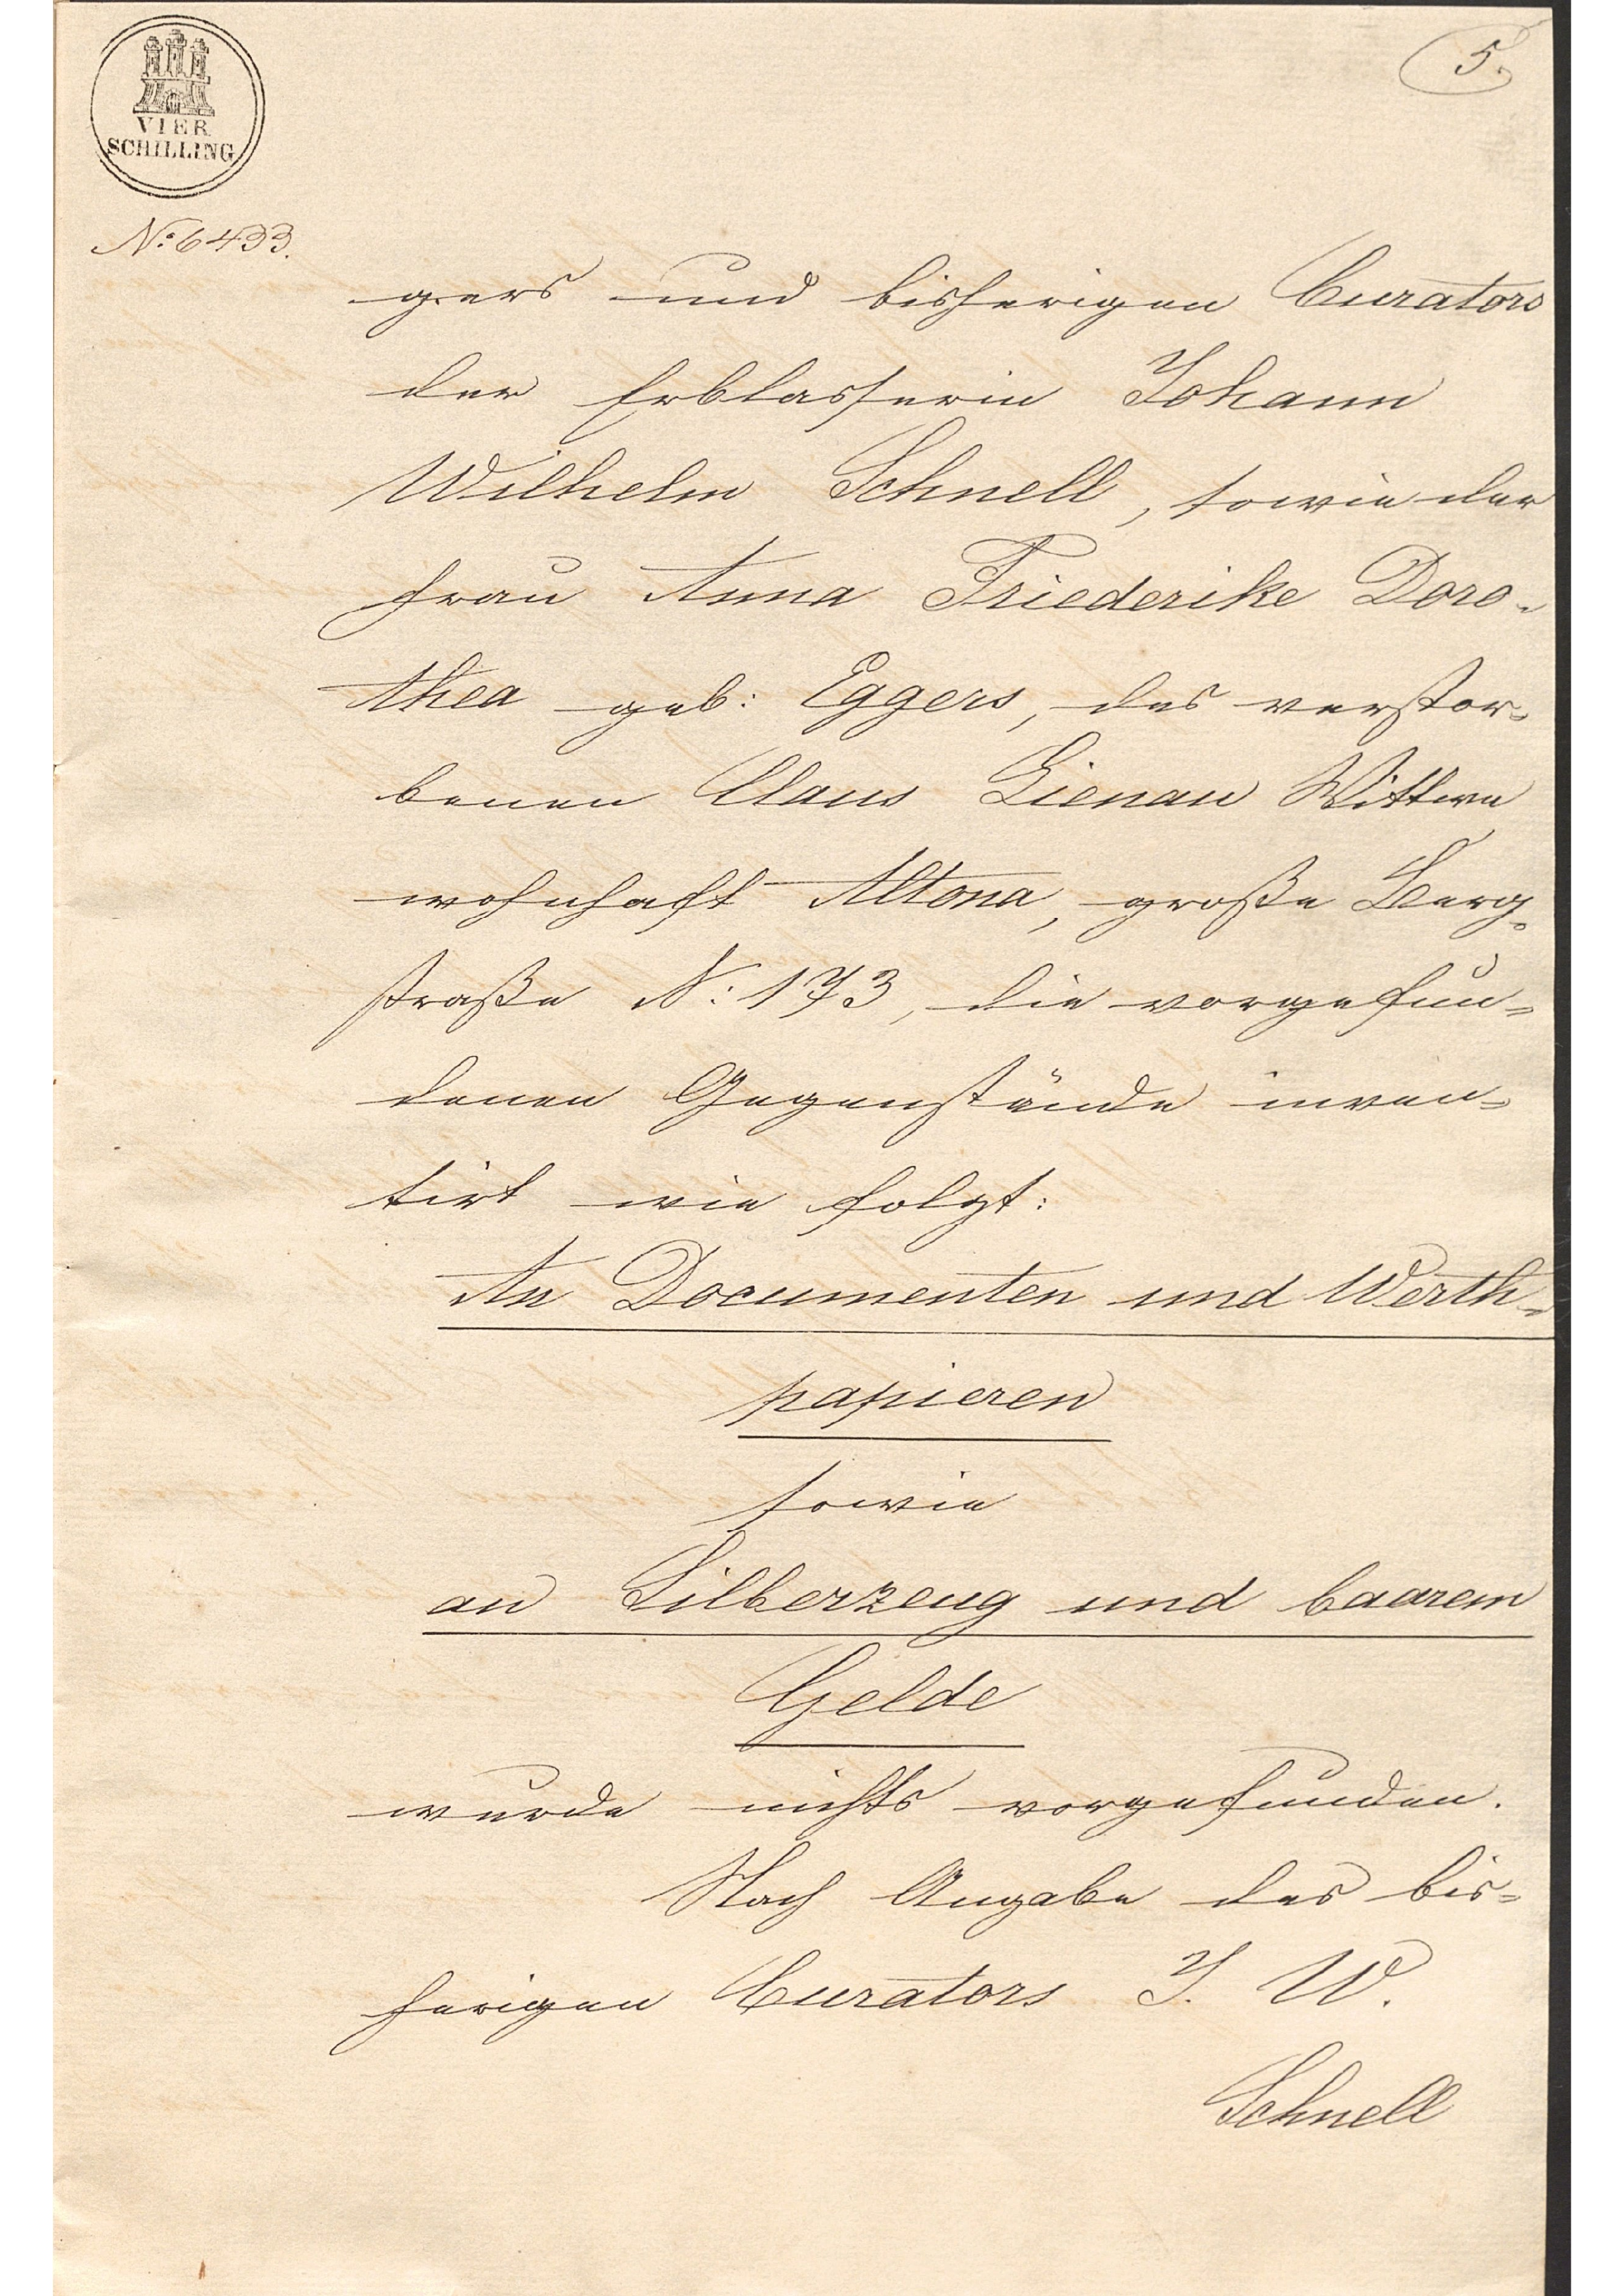 VIER
SCHILLING
5.
N: 6433.
gers und bisherigen Curators
der Erblasserin Johann
Wilhelm Schnell, sowie der
Frau Anna Friederike Doro-
thea geb: Eggers, des verstor-
benen Claus Lienau Wittwe
wohnhaft Altona, große Berg-
straße N: 173, die vorgefun-
denen Gegenstände inven-
tirt wie folgt:
An Documenten und Werth-
papieren
sowie
an Silberzeug und baarem
Gelde
wurde nichts vorgefunden.
Nach Angabe des bis-
herigen Curators J. W.
Schnell